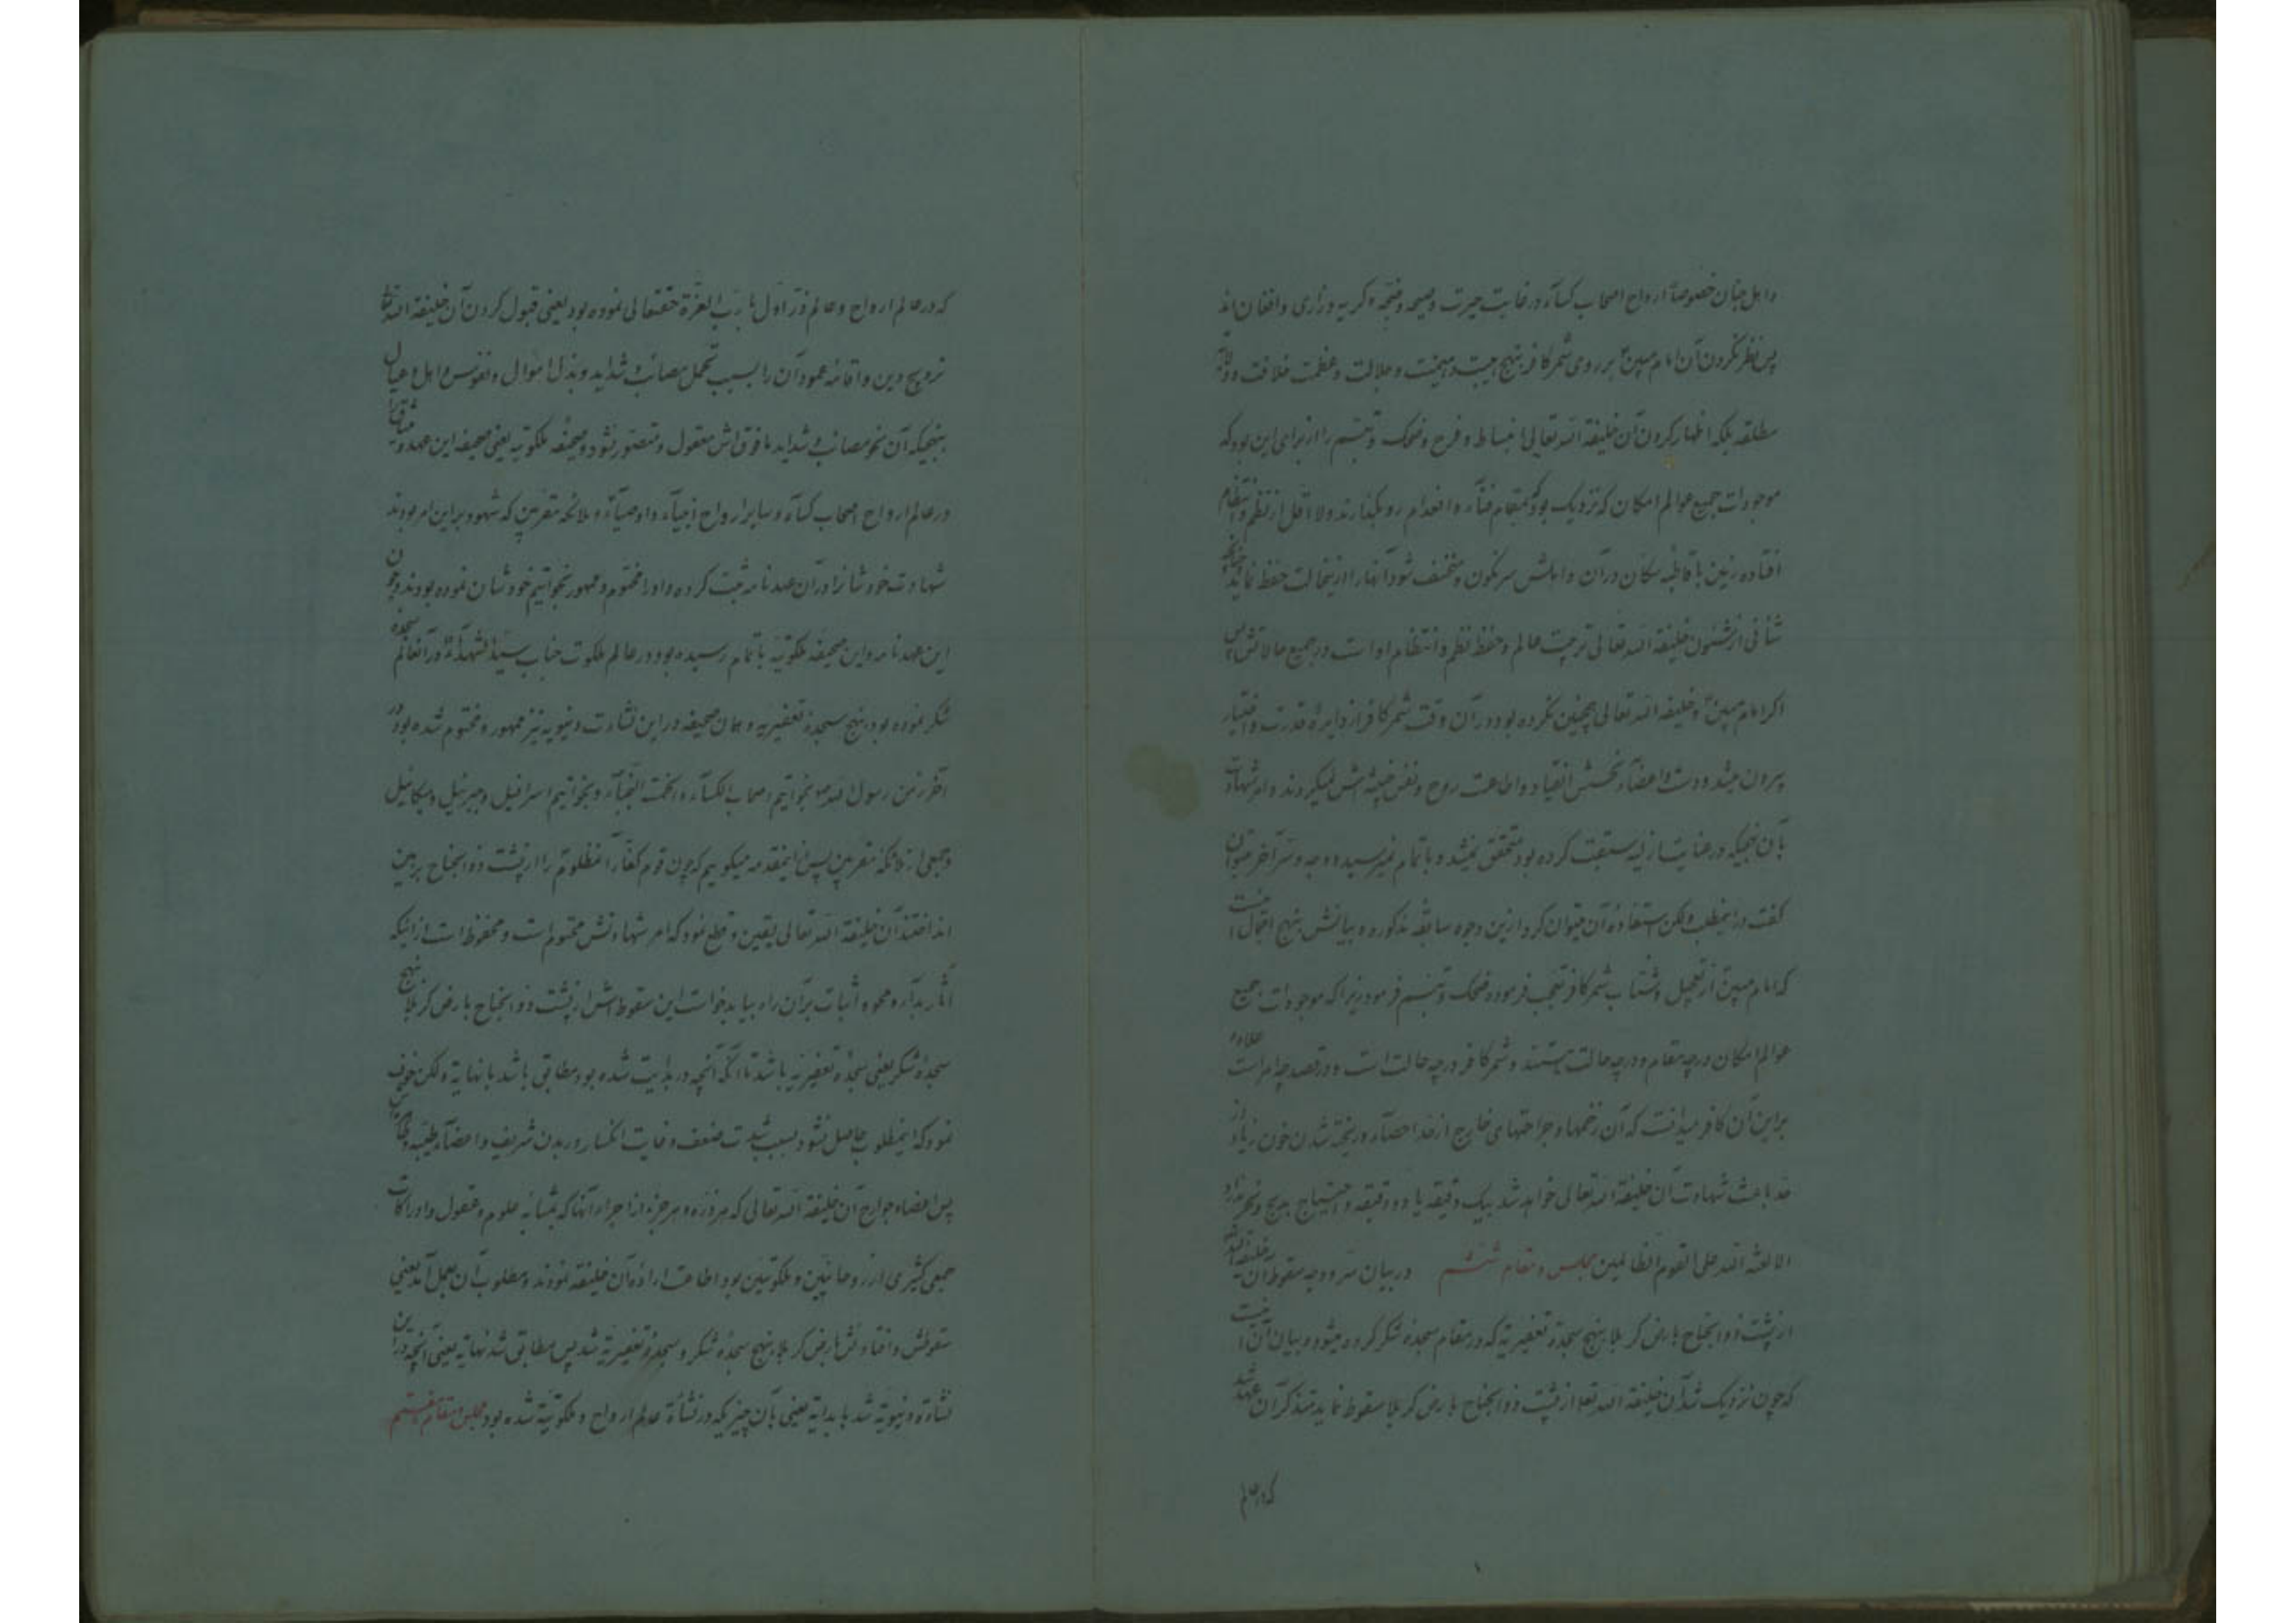 و اهل جنان خصوصاً ارواح اصحاب کسآء در غایت حیرت و صیحه و ضجه و گریه و زاری و افغان اند
پس نظر نکردن آن امام مبین بر روی شمر کافر بنهج هیبت و جلالت و عظمت خلافت و
مطلقه بلکه اظهار کردن آن خلیفة الله تعالی انبساط و فرح و ضحک و تبسم را از برای این بود که
موجودات جمیع عوالم امکان که نزدیک بود که بمقام فنآء و انعدام رو بگذارند و لا اقل از نظم و انتظام
افتاده زمین با قاطبه سکان در آن و اهلش سرنکون و منخسف شود آنها را ازینحالت حفظ نماید چونکه
شأنی از شئون خلیفة الله تعالی تربیت عالم و حفظ نظم و انتظام او است در جمیع حالاتش پس
اگر امام مبین و خلیفة الله تعالی همچنین نکرده بود در آن وقت شمر کافر از دایرهٔ قدرت و اختیار
بیرون میشد و دست و اعضآء نحسش انقیاد و اطاعت روح و نفس خبیثه اش نمیکردند و امر شهادت
بآن نهجیکه در عنایت ازلیه سبقت کرده بود متحقق نمیشد و باتمام نمیرسید و وجه و سر آخر میتوان
گفت در اینمطلب و لکن استفادهٔ آن میتوان کرد ازین وجوه سابقه مذکوره و بیانش بنهج اجمال اینست
که امام مبین از تعجیل و شتاب شمر کافر تعجب فرمود و ضحک و تبسم فرمود زیرا که موجودات جمیع
عوالم امکان در چه مقام و در چه حالت هستند و شمر کافر در چه حالت است و در قصد چه امر است علاوه
براین آن کافر میدانست که آن زخمها و جراحتهای خارج از حد احصآء و ریخته شدن خون زیاد از
حد باعث شهادت آن خلیفة الله تعالی خواهد شد بیک دقیقه یا دو دقیقه و احتیاج بذبح و نحر ندارد
الا لعنة الله علی القوم الظالمین مجلس و مقام ششم در بیان سر و وجه سقوط آن خلیفة الله
از پشت ذو الجناح بارض کربلا بنهج سجدهٔ تعفیریه که در مقام سجدهٔ شکر کرده میشود و بیان آن اینست
که چون نزدیک شد آن خلیفة الله تعالی از پشت ذو الجناح بارض کربلا سقوط نماید متذکر آن عهد شد
که در عالم
که در عالم ارواح و عالم ذر اول با رب العزة حقتعالی نموده بود یعنی قبول کردن آن خلیفة الله تعالی
ترویج دین و اقامه عمود آن را بسبب تحمل مصائب و شداید و بذل اموال و نفوس و اهل و عیال
بنهجیکه آن نحو مصائب و شداید ما فوق اش معقول و متصور نشود و صحیفه ملکوتیه یعنی صحیفه این عهد و میثاق را
در عالم ارواح اصحاب کسآء و سایر ارواح انبیآء و اوصیآء و ملائکه مقربین که شهود بر این امر بودند
شهادت خودشانرا در آن عهدنامه ثبت کرده و او را مختوم و ممهور بخواتیم خودشان نموده بودند و چون
این عهدنامه و این صحیفه ملکوتیه باتمام رسیده بود در عالم ملکوت جناب سید الشهدآء در آنعالم سجده
شکر نموده بود بنهج سجدهٔ تعفیریه و همان صحیفه در این نشأت دنیویه نیز ممهور و مختوم شده بود در
آخر زمن رسول الله بخواتیم اصحاب الکسآء و الخمسة النجبآء و بخواتیم اسرافیل و جبرئیل و میکائیل
و جمعی از ملائکه مقربین پس از اینمقدمه میگوییم که چون قوم کفار آنمظلوم را از پشت ذو الجناح بر زمین
انداختند آن خلیفة الله تعالی یقین و قطع نمود که امر شهادتش محتوم است و محفوظ است از اینکه
آثار بدآء و محو و اثبات بر آن راه بیابد خواست این سقوطش از پشت ذو الجناح بارض کربلا بنهج
سجدهٔ شکر یعنی سجدهٔ تعفیریه باشد تا آنکه آنچه در بدایت شده بود مطابق باشد با نهایة و لکن خوف
نمود که اینمطلوب حاصل نشود بسبب شدت ضعف و غایت انکسار در بدن شریف و اعضآء طیبه
پس اعضاء و جوارح آن خلیفة الله تعالی که هر ذره و هر جزء از اجزاء آنها که بمثابه علوم و عقول و ادراکات
جمعی کثیری از روحانیین و ملکوتیین بود اطاعت ارادهٔ آن خلیفه نمودند و مطلوب آن بعمل آمد یعنی
سقوطش و افتادنش بارض کربلا بنهج سجدهٔ شکر و سجدهٔ تعفیریه شد پس مطابق شد نهایة یعنی آنچه در این
نشأة دنیویه شد با بدایة یعنی بآن چیزیکه در نشأة عالم ارواح و ملکوتیه شده بود مجلس و مقام هفتم